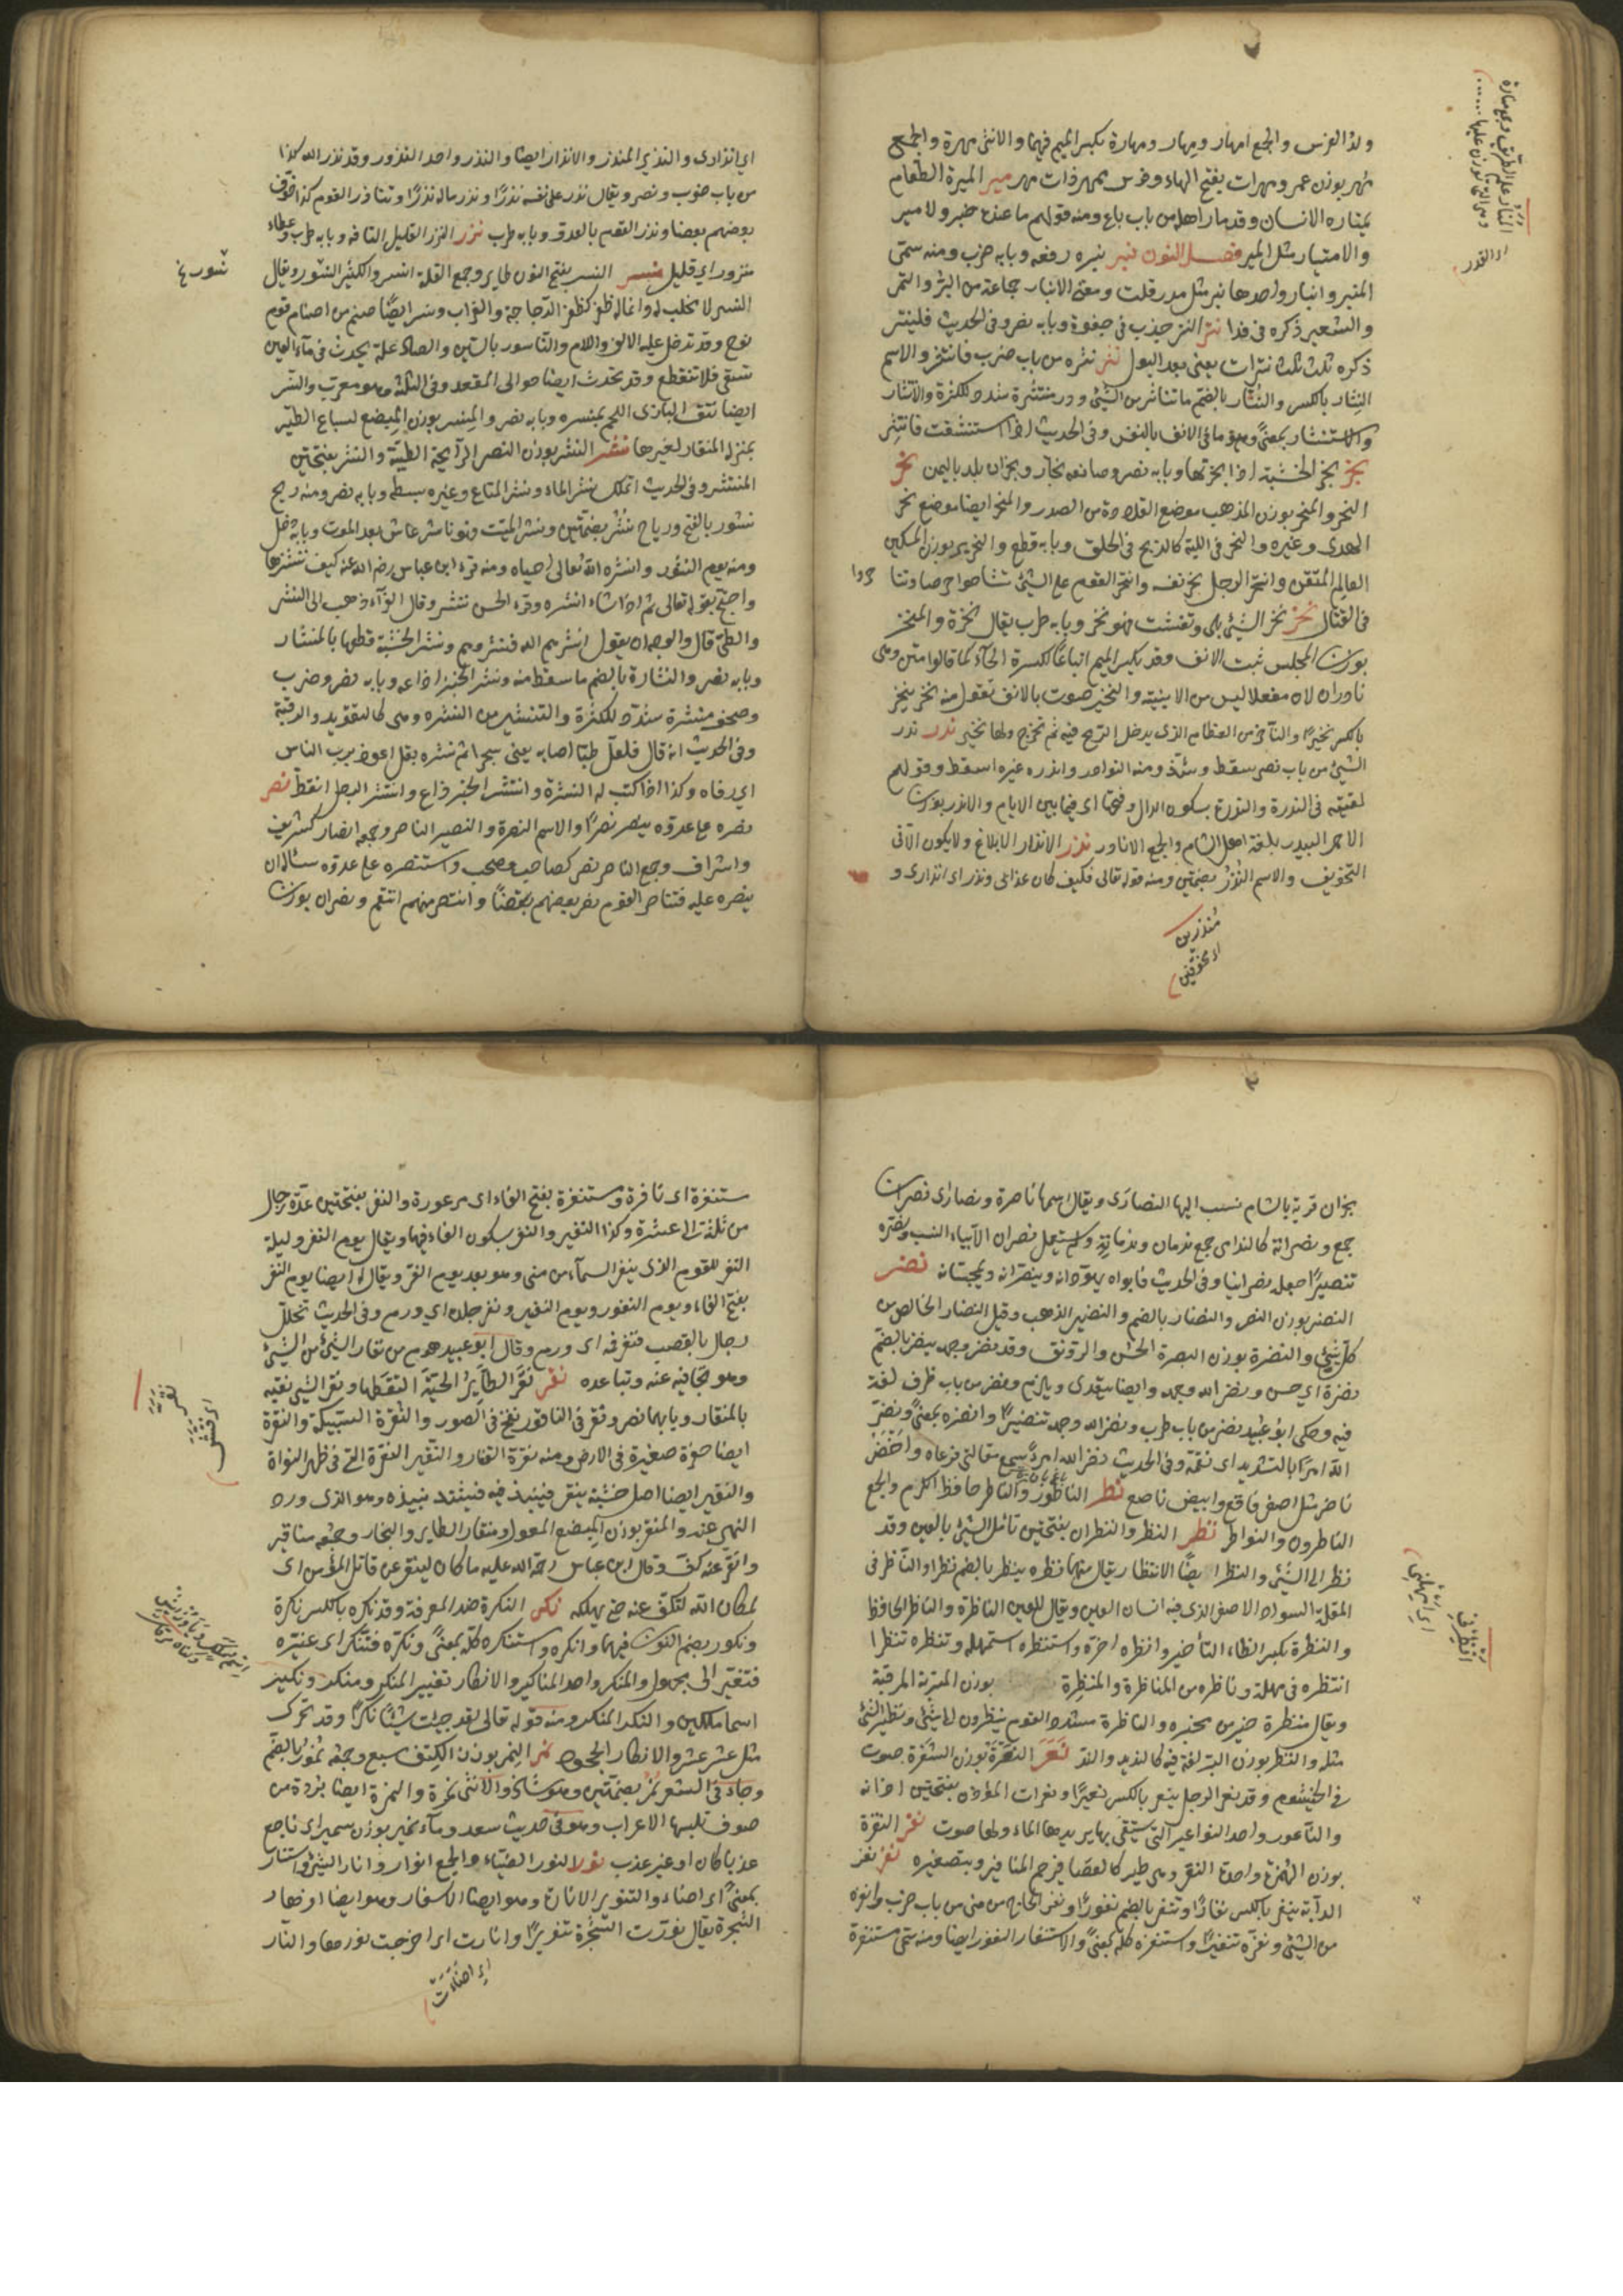 ولد الفرس والجمع امهار ومهار ومهارة بكسر الميم فيهما والانثى مهرة والجمع
مهر بوزن عمر ومهرات بفتح الهاء وفرس ممهر ذات مهر مير الميرة الطعام
يمتاره الانسان وقد مار اهله من باب باع ومنه قولهم ما عنده خير ولا مير
والامتيار مثل المير فصل النون نبر نبره رفعه وبابه ضرب ومنه سمى
المنبر وانبار واحدها نبر مثل ومعنى الانبار جماعة من البر والتمر
والشعير ذكره فى فدا نتر النتر جذب فى جفوة وبابه نصر وفى الحديث فلينتر
ذكره ثلث نترات يعنى بعد البول نثر نثره من باب ضرب فانتثر والاسم
النثار بالكسر والنثار بالضم ما تناثر من الشئ ودر منثرة شدد للكثرة والانتثار
والاستنثار بمعنى وهو ما فى الانف بالنفس وفى الحديث اذا استنشقت فانتثر
نجر نجر الخشبة اذا نجرتها وبابه نصر وصانعه نجار ونجران بلد باليمن نحر
النحر والمنحر بوزن المذهب موضع القلادة من الصدر والمنحر ايضا موضع نحر
الهدى وغيره والنحر فى اللبة كالذبح فى الحلق وبابه قطع والنحرير بوزن المسكين
العالم المتقن وانتحر الرجل نحر نفسه وانتحر القوم على الشئ تشاحوا حرصا وتنا حروا
فى القتال نخر نخر الشئ بلى وتفتت فهو نخر وبابه طرب يقال نخرة والمنخر
بوزن المجلس ثقب الانف وقد يكسر الميم اتباعا لكسرة الخاء كما قالوا منتن وهى
نادران لان مفعلا ليس من الابنية والنخير صوت بالانف تقول منه نخر ينخر
بالكسر نخيرا والناخر من العظام الذى يدخل الريح فيه ثم تخرج ولها نخير ندر ندر
الشئ من باب نصر سقط وشذ ومنه النوادر واندره غيره اسقط وقولهم
لقيته فى الندرة والندرة بسكون الدال وفتحها اى فيما بين الايام والاندر بوزن
الاحمر البيدر بلغة اهل الشام والجمع الانادر نذر الانذار الابلاغ ولا يكون الا فى
التخويف والاسم النذر بضمتين ومنه قوله تعالى فكيف كان عذابى ونذر اى انذارى و
منذرين
اى مخوفين
اى القدر
اى انذارى والنذير المنذر والانذار ايضا والنذر واحد النذور وقد نذر الله كذا
من باب ضرب ونصر ويقال نذر على نفسه نذرا ونذر ماله نذرا وتناذر القوم كذا خوف
بعضهم بعضا ونذر القوم بالعدو وبابه طرب نزر النزر القليل التافه وبابه ظرف وعطاء
منزور اى قليل نسر النسر بفتح النون طاير وجمع القلة انسر والكثير النسور ويقال
نسور نخ
النسر لا مخلب له وانما له ظفر كظفر الدجاجة والغراب ونسر ايضا صنم من اصنام قوم
نوح وقد تدخل عليه الالف واللام والناسور بالسين والصاد علة يحدث فى مآقى العين
تسقى فلا تنقطع وقد تحدث ايضا حوالى المقعد وفى اللثة وهو معرب والنسر
ايضا نتف البازى اللحم بمنسره وبابه نصر والمنسر بوزن المبضع لسباع الطير
بمنزلة المنقار لغيرها نشر النشر بوزن النصر الرايحة الطيبة والنشر بفتحتين
المنتشر وفى الحديث اتملك نشر الماء ونشر المتاع وغيره بسطه وبابه نصر ومنه ريح
نشور بالفتح ورياح نشر بضمتين ونشر الميت فهو ناشر عاش بعد الموت وبابه دخل
ومنه يوم النشور وانشره الله تعالى احياه ومنه قرء ابن عباس رضى الله عنه كيف ننشرها
واحتج بقوله تعالى ثم اذا شاء انشره وقرء الحسن ننشر وقال الفراء ذهب الى النشر
والطى قال والوجه ان يقول انشرهم الله فنشروهم ونشر الخشبة قطعها بالمنشار
وبابه نصر والنشارة بالضم ما سقط منه ونشر الخبر اذاعه وبابه نصر وضرب
وصحف منشرة شدد للكثرة والتنشير من النشره وهى كالتعويذ والرقية
وفى الحديث انه قال فلعل طبا اصابه يعنى سحرا ثم نشره بقل اعوذ برب الناس
اى رقاه وكذا اذا كتب له النشرة وانتشر الخبر ذاع وانتشر الرجل انعظ نصر
نصره على عدوه ينصر نصرا والاسم النصرة والنصير الناصر وجمعه انصار كشريف
واشراف وجمع الناصر نصر كصاحب وصحب واستنصره على عدوه سئاله ان
ينصره عليه فتناصر القوم نصر بعضهم بعضا وانتصر منهم انتقم ونصران بوزن
نجران قرية بالشام نسب اليها النصارى ويقال اسمها ناصرة ونصارى نصران
جمع ونصرانة كالندامى جمع ندمان وندمانة ولم يستعمل نصران الا بياء النسب ونصره
تنصيرا جعله نصرانيا وفى الحديث فابواه يهودانه وينصرانه ويمجسانه نضر
النضر بوزن النصر والنضار بالضم والنضير الذهب وقيل النضار الخالص من
كل شئ والنضرة بوزن البصرة الحسن والرونق وقد نضر وجهه ينضر بالضم
نضرة اى حسن ونضر الله وجهه وايضا يتعدى ويلزم ونضر من باب ظرف لغة
فيه وحكى ابو عبيد نضر من باب طرب ونضر الله وجهه تنضيرا وانضره بمعنى ونضر
الله امرا بالتشديد اى نعمه وفى الحديث نضر الله امرا سمع مقالتى فوعاها واخضر
ناضر مثل اصفر فاقع وابيض ناصع نطر الناطور والناطر حافظ الكرم والجمع
الناطرون والنواطر نظر النظر والنظران بفتحتين تأمل الشئ بالعين وقد
نظر الى الشئ والنظر ايضا الانتظار يقال منهما نظره ينظر بالضم نظرا والناظر فى
المقلة السواد الاصغر الذى فيه انسان العين ويقال للعين الناظرة والناظر الحافظ
والنظرة بكسر الظاء التأخير وانظره اخره واستنظره استمهله وتنظره تنظرا
انتظره فى مهلة وناظره من المناظرة والمنظرة بوزن المتربة المرقبة
ويقال منظرة خير من مخبره والناظرة القوم ينظرون الى شئ ونظير الشئ
مثله والنظر بوزن التبر لغة فيه كالنديد والند نعر النعرة بوزن الشعرة صوت
فى الخيشوم وقد نعر الرجل ينعر بالكسر نعيرا ونعرات المؤذن بفتحتين اذانه
والناعور واحد النواعير التى يستقى بها يديرها الماء ولها صوت نغر النغرة
بوزن الهمزة واحدة النغر وهى طير كالعصافير حمر المناقير وبتصغيره نفر نفر
الدابة ينفر بالكسر نفارا وتنفر بالضم نفورا ونفر الحاج من منى من باب ضرب وانفره
من الشئ ونفره تنفيرا واستنفره كله بمعنى والاستنفار النفور ايضا ومنه حمر مستنفرة
مستنفرة اى نافرة ومستنفرة بفتح الفاء اى مذعورة والنفر بفتحتين عدة رجال
من ثلثة الى عشرة وكذا النفير والنفر بسكون الفاء فيهما ويقال يوم النفر وليلة
النفر للقوم الذى ينفر الناس من منى وهو بعد يوم القر ويقال له ايضا يوم النفر
بفتح الفاء ويوم النفور ويوم النفير ونفر جلده اى ورم وفى الحديث تخلل
رجل بالقصب فنفر فمه اى ورم وقال ابو عبيد هو من نفار الشئ من الشئ
وهو تجافيه عنه وتباعده نقر نقر الطاير الحبة التقطها ونقر الشئ نقبه
بالمنقار وبابهما نصر ونقر فى الناقور نفخ فى الصور والنقرة السبيكة والنقرة
ايضا حفرة صغيرة فى الارض ومنه نقرة القفا والنقير النقرة التى فى ظهر النواة
والنقير ايضا اصل خشبة ينقر فينبذ فيه فيشتد نبيذه وهو الذى ورد
النهى عنه والمنقر بوزن المبضع المعول ومنقار الطاير والنجار وجمعه مناقير
وانقر عنه كف وقال ابن عباس رحمة الله عليه ما كان لينقر عن قاتل المؤمن اى
ما كان الله ليكف عنه حتى يهلكه نكر النكرة ضد المعرفة وقد نكره بالكسر نكرة
ونكور بضم النون فيهما وانكره واستنكره كله بمعنى ونكره فتنكر اى غيره
فتغير الى مجهول والمنكر واحد المناكير والانكار تغيير المنكر ومنكر ونكير
اسما ملكين والنكر المنكر ومنه قوله تعالى لقد جئت شيئا نكرا وقد تحرك
مثل عسر عسر والانكار الجحود نمر النمر بوزن الكتف سبع وجمعه نمور بالضم
وجاء فى الشعر نمر بضمتين وهو شاذ والانثى نمرة والنمرة ايضا بردة من
صوف تلبسها الاعراب وهو فى حديث سعد وماء نمير بوزن سمير اى ناجع
عذبا كان او غير عذب نور النور الضياء والجمع انوار وانار الشئ واستنار
بمعنى اى اضاء والتنوير الانارة وهو ايضا الاسفار وهو ايضا ازهار
الشجرة يقال نورت الشجرة تنويرا وانارت اى اخرجت نورها والنار
اى اضاءت